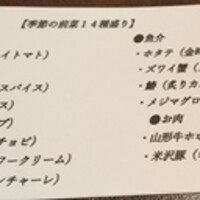 【季節の前菜14種盛り】
イトマト）
スパイス）
ス）
プ）
チョビ）
ワークリーム）
ンチャーレ）
●魚介
・ホタテ（金
・ズワイ蟹（
・鰆（炙りカ
・メジマグロ
●お肉
・山形牛ホホ
・米沢豚（